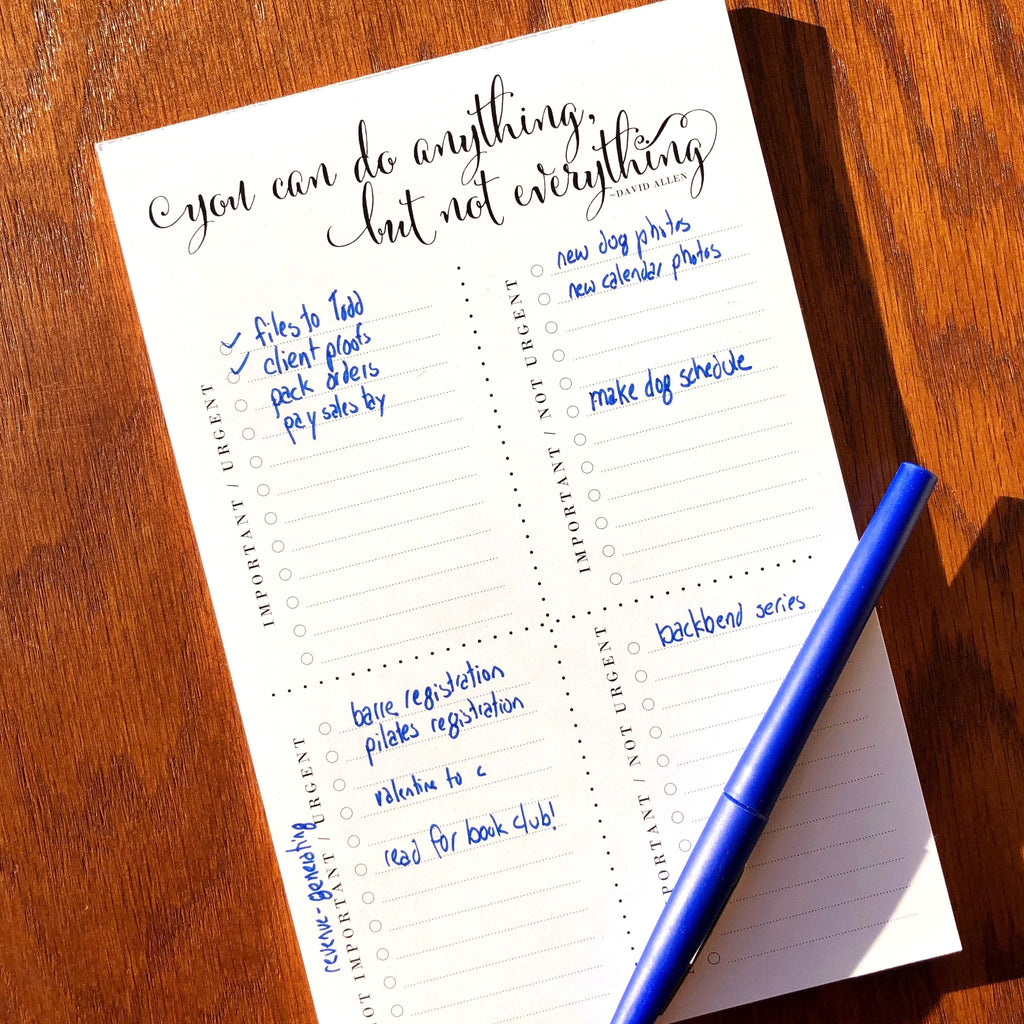 you can do anything,
but not everything
~DAVID ALLEN
IMPORTANT / URGENT
files to Todd
client proofs
pack orders
pay sales tay
IMPORTANT / NOT URGENT
new dog photos
new calendar photos
make dog schedule
NOT IMPORTANT / URGENT
revenue-generating
barre registration
pilates registration
valentine to c
read for book club!
PORTANT / NOT URGENT
backbend series